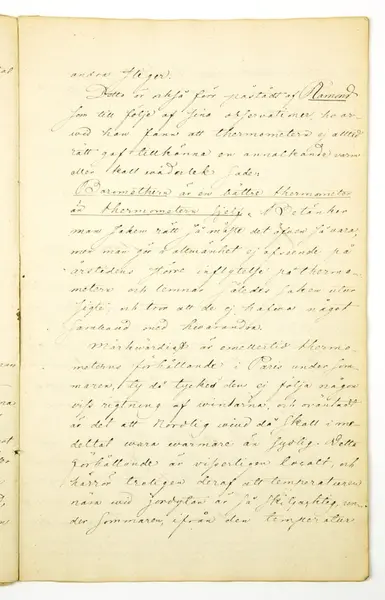 andra stiger.
Detta är också före påstådt af Ramond
som till följe af sina observationer, hvar-
vid han fann att thermometern ej alltid
rätt gaf tillkänna en annalkande varm
eller kall wäderlek sade:
Barometern är en bättre thermometer
än thermometern sjelf. Betänker
man saken rätt så måste det äfven så vara,
men man gör i allmänhet ej afseende på
årstidens större inflytelse på thermo-
metern och lemnar således saken utur
sigte, och tror att de ej hafva något
samband med hvarandra.
Märkvärdigt är emellertid thermo-
meterns förhållande i Paris under som-
maren, ty då tyckes den ej följa någon
viss rigtning af windarna, och oväntadt
är det att Nordlig wind då skall i me-
deltal wara warmare än sydlig. Detta
förhållande är visserligen localt, och
härrör troligen deraf att temperaturen
nära wid jordytan är så skiljaktig, un-
der sommaren, ifrån den temperatur